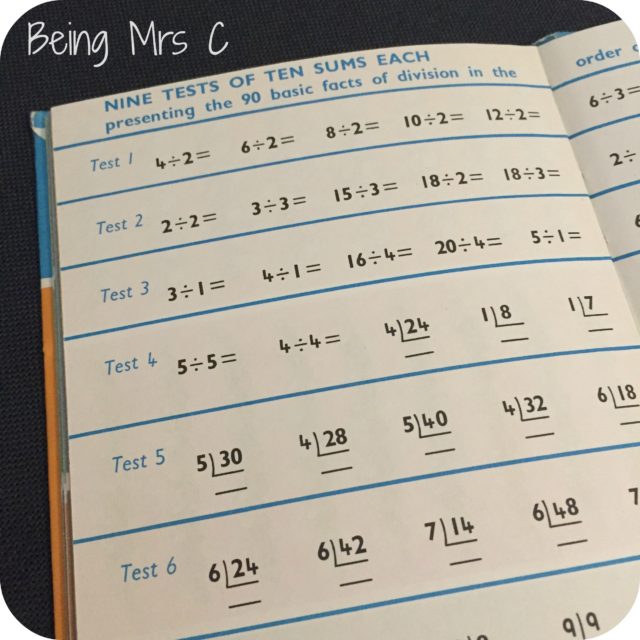 Being Mrs C
NINE TESTS OF TEN SUMS EACH
presenting the 90 basic facts of division in the
order
Test 1 4÷2= 6÷2= 8÷2= 10÷2= 12÷2=
6÷3=
Test 2 2÷2= 3÷3= 15÷3= 18÷2= 18÷3=
2÷
Test 3 3÷1= 4÷1= 16÷4= 20÷4= 5÷1=
Test 4 5÷5= 4÷4= 4)24 1)8 1)7
Test 5 5)30 4)28 5)40 4)32 6)18
Test 6 6)24 6)42 7)14 6)48 7
9)9